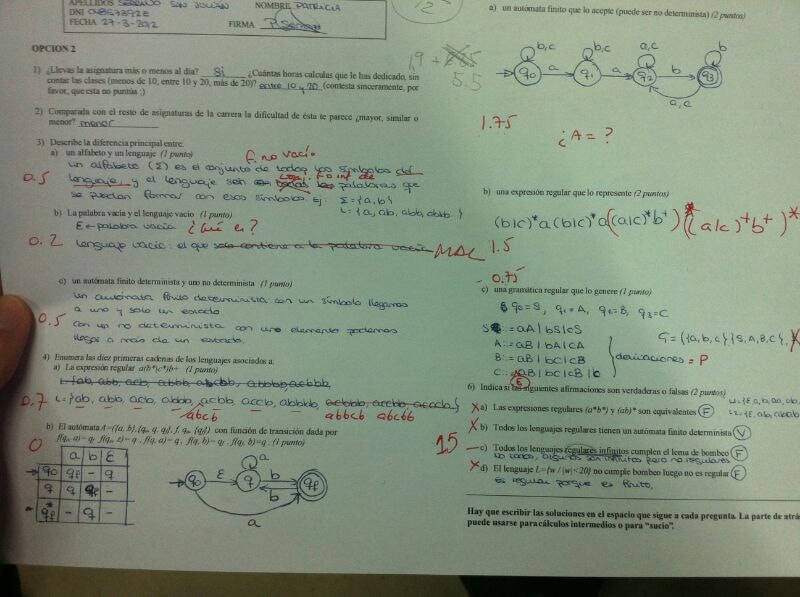 APELLIDOS SERRANO SAN JULIAN NOMBRE PATRICIA
DNI
FECHA 27-3-2012 FIRMA P. Serrano
12
OPCION 2
1,9 +
5.5
1) ¿Llevas la asignatura más o menos al día? Si ¿Cuántas horas calculas que le has dedicado, sin
contar las clases (menos de 10, entre 10 y 20, más de 20)? entre 10 y 20 (contesta sinceramente, por
favor, que esta no puntúa ;)
2) Comparada con el resto de asignaturas de la carrera la dificultad de ésta te parece ¿mayor, similar o
menor? menor
3) Describe la diferencia principal entre:
a) un alfabeto y un lenguaje (1 punto) f. no vacío
un alfabeto (Σ) es el conjunto de todos los símbolos del
0.5 lenguaje, y el lenguaje son todas las palabras que
se puedan formar con esos símbolos. Ej: Σ={a,b}
b) La palabra vacía y el lenguaje vacío (1 punto)
ε ← palabra vacía ¿Qué es?
0.2 lenguaje vacío: el que solo contiene a la palabra vacía MAL
c) un autómata finito determinista y uno no determinista (1 punto)
un autómata finito determinista con un símbolo llegamos
a uno y solo un estado
0.5 con un no determinista con un elemento podemos
llegar a mas de un estado.
4) Enumera las diez primeras cadenas de los lenguajes asociados a:
a) La expresión regular a(b*|c)b+ (1 punto)
0.7 L={ab, abb, acb, abbb, acbb, accb, abbbb,
abcb abbcb abcbb
b) El autómata A=({a, b},{q₀, q, qf}, f, q₀, {qf}) con función de transición dada por
f(q₀, a)= qf, f(q₀, ε)= q , f(q, a)= q , f(q, b)= qf , f(qf, b)=q . (1 punto)
0
a b ε
→ q0 qf - q
q q qf -
* qf - q -
q0 ε q b qf
a b a
a) un autómata finito que lo acepte (puede ser no determinista) (2 puntos)
b,c b,c a,c b
q0 a q1 a q2 b q3
a,c
1.75 ¿A = ?
b) una expresión regular que lo represente (2 puntos)
(b|c)*a(b|c)*a((a|c)*b+)((a|c)+b+)*
1.5
0.75
c) una gramática regular que lo genere (1 punto)
q0=S, q1=A, q2=B, q3=C
S::=aA|bS|cS
A::=aB|bA|cA
B::=aB|bC|cB
C::=aB|bC|cB|b
derivaciones = P
G=({a,b,c},{S,A,B,C},
6) Indica si las siguientes afirmaciones son verdaderas o falsas (2 puntos)
a) Las expresiones regulares (a*b*) y (ab)* son equivalentes F
b) Todos los lenguajes regulares tienen un autómata finito determinista V
1.5 c) Todos los lenguajes regulares infinitos cumplen el lema de bombeo F
No todos, algunos son infinitos pero no regulares
d) El lenguaje L={w / |w|<20} no cumple bombeo luego no es regular F
Es regular porque es finito.
Hay que escribir las soluciones en el espacio que sigue a cada pregunta. La parte de atrá
puede usarse para cálculos intermedios o para "sucio".